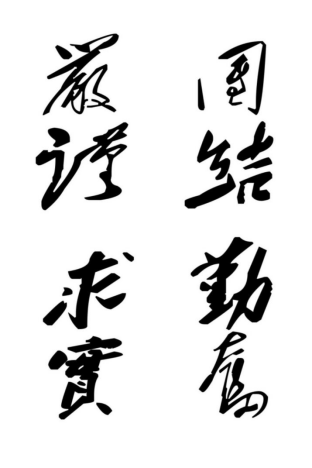 團結
勤奮
嚴謹
求實